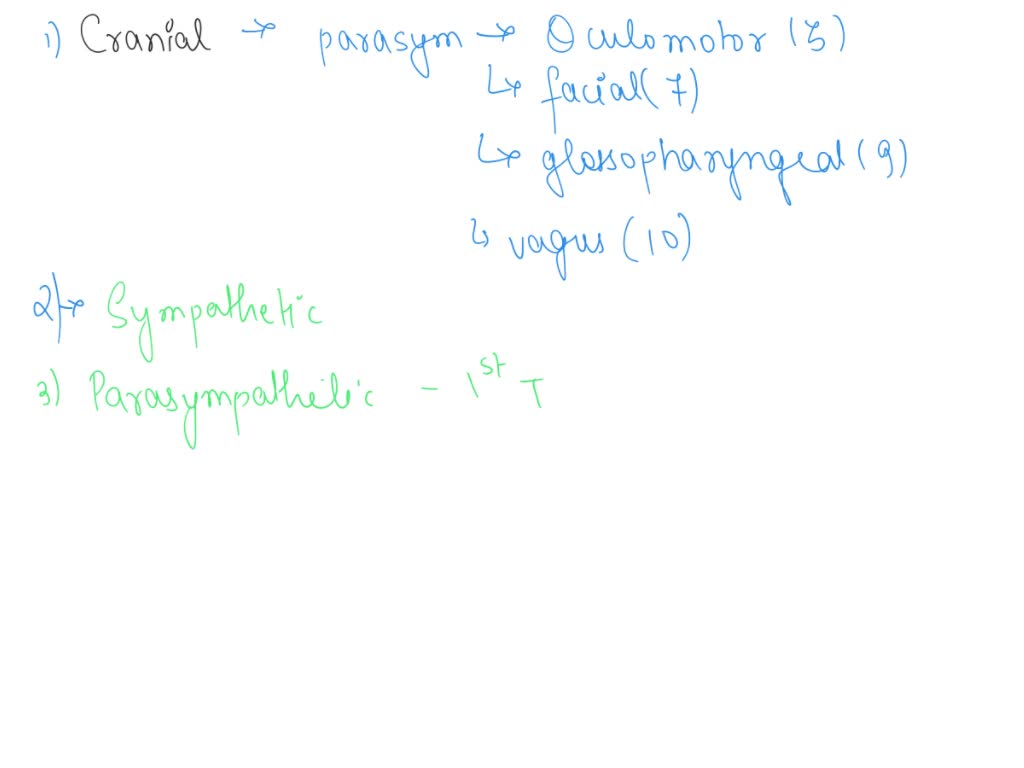 1) Cranial → parasym → Oculomotor (3)
↳ facial (7)
↳ glossopharyngeal (9)
↳ vagus (10)
2) → Sympathetic
3) Parasympathetic - 1st T